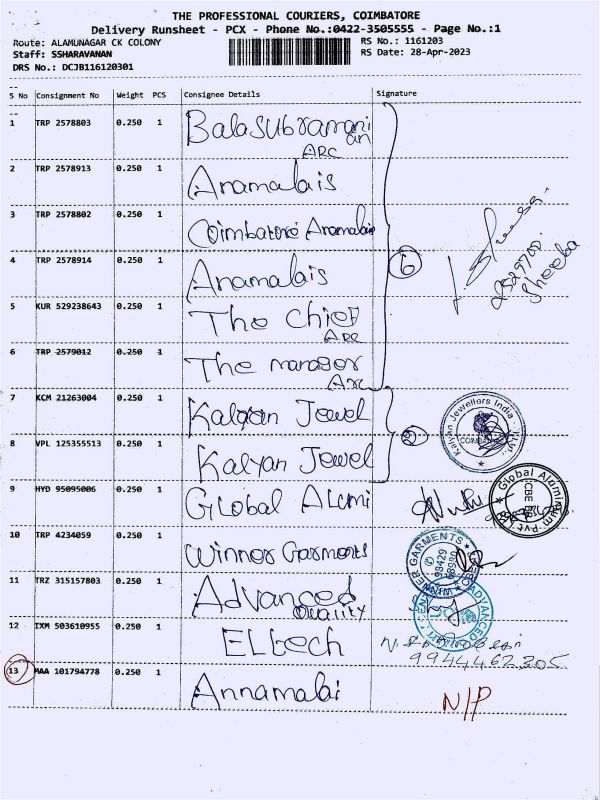 THE PROFESSIONAL COURIERS, COIMBATORE
Delivery Runsheet - PCX - Phone No.:0422-3505555 - Page No.:1
Route: ALAMUNAGAR CK COLONY
RS No.: 1161203
Staff: SSHARAVANAN
RS Date: 28-Apr-2023
DRS No.: DCJB116120301
S No Consignment No Weight PCS Consignee Details Signature
1 TRP 2578803 0.250 1 Balasubramani
an
ARC
2 TRP 2578913 0.250 1 Anamalais
3 TRP 2578802 0.250 1 Coimbatore Anamalais
4 TRP 2578914 0.250 1 Anamalais
6
2529700
Sheeba
5 KUR 529238643 0.250 1 The Chief
ARC
6 TRP 2579012 0.250 1 The manager
Arc
7 KCM 21263004 0.250 1 Kalyan Jewel
Kalyan Jewellers India
8 VPL 125355513 0.250 1 Kalyan Jewel
2
9 HYD 95095006 0.250 1 Global Alumi
Global Aluminium Pvt
CBE
10 TRP 4234059 0.250 1 Winner Garments
WINNER GARMENTS
98429
11 TRZ 315157803 0.250 1 Advanced
Quality
ADVANCED
12 IXM 503610955 0.250 1 ELtech
9944462305
13 MAA 101794778 0.250 1 Annamalai
N/P